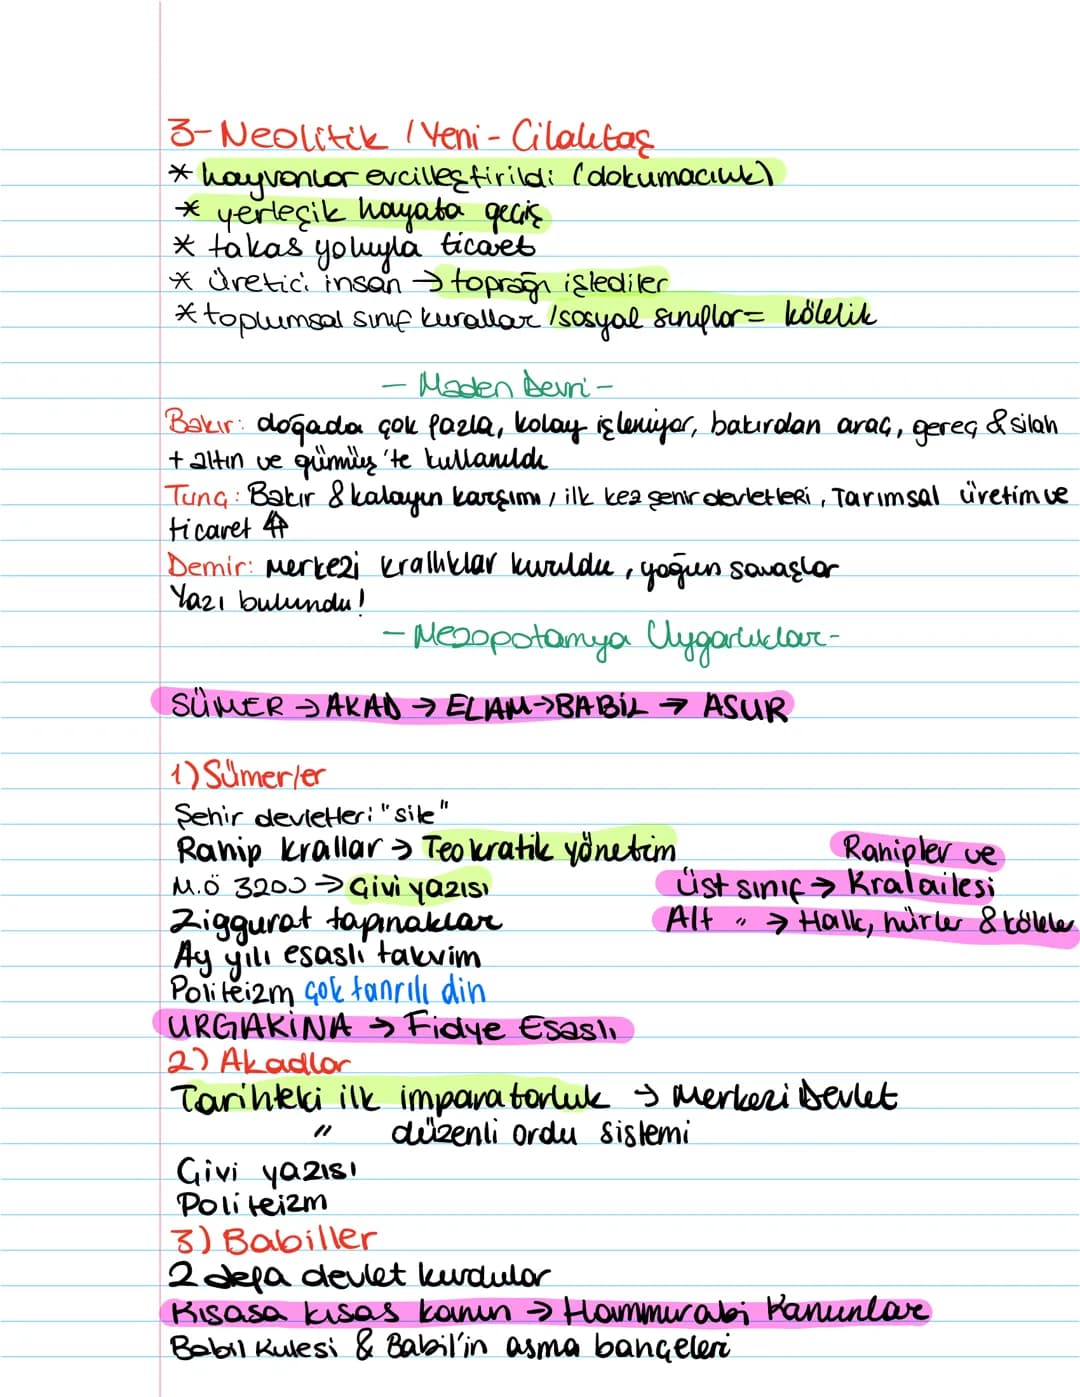 3-Neolitik / Yeni - Cilalıtaş
* hayvanlar evcilleştirildi (dokumacılık)
* yerleşik hayata geçiş
* takas yoluyla ticaret
* üretici insan → toprağı işlediler
* toplumsal sınıf kurallar / sosyal sınıflar = kölelik
- Maden Devri -
Bakır: doğada çok fazla, kolay işleniyor, bakırdan araç, gereç & silah
+ altın ve gümüş'te kullanıldı
Tunç: Bakır & kalayın karışımı, ilk kez şehir devletleri, Tarımsal üretim ve
ticaret ⇑
Demir: Merkezi krallıklar kuruldu, yoğun savaşlar
Yazı bulundu!
- Mezopotamya Uygarlıklar -
SÜMER → AKAD → ELAM → BABİL → ASUR
1) Sümerler
Şehir devletleri "site"
Rahip krallar → Teokratik yönetim
M.Ö 3200 → Çivi yazısı
Ziggurat tapınaklar
Ay yılı esaslı takvim
Politeizm çok tanrılı din
URGAKİNA → Fidye Esaslı
Rahipler ve
üst sınıf → Kral ailesi
Alt " → Halk, hürler & köleler
2) Akadlar
Tarihteki ilk imparatorluk → Merkezi Devlet
" düzenli ordu sistemi
Çivi yazısı
Politeizm
3) Babiller
2 defa devlet kurdular
Kısasa kısas kanun → Hammurabi Kanunlar
Babil Kulesi & Babil'in asma bahçeleri